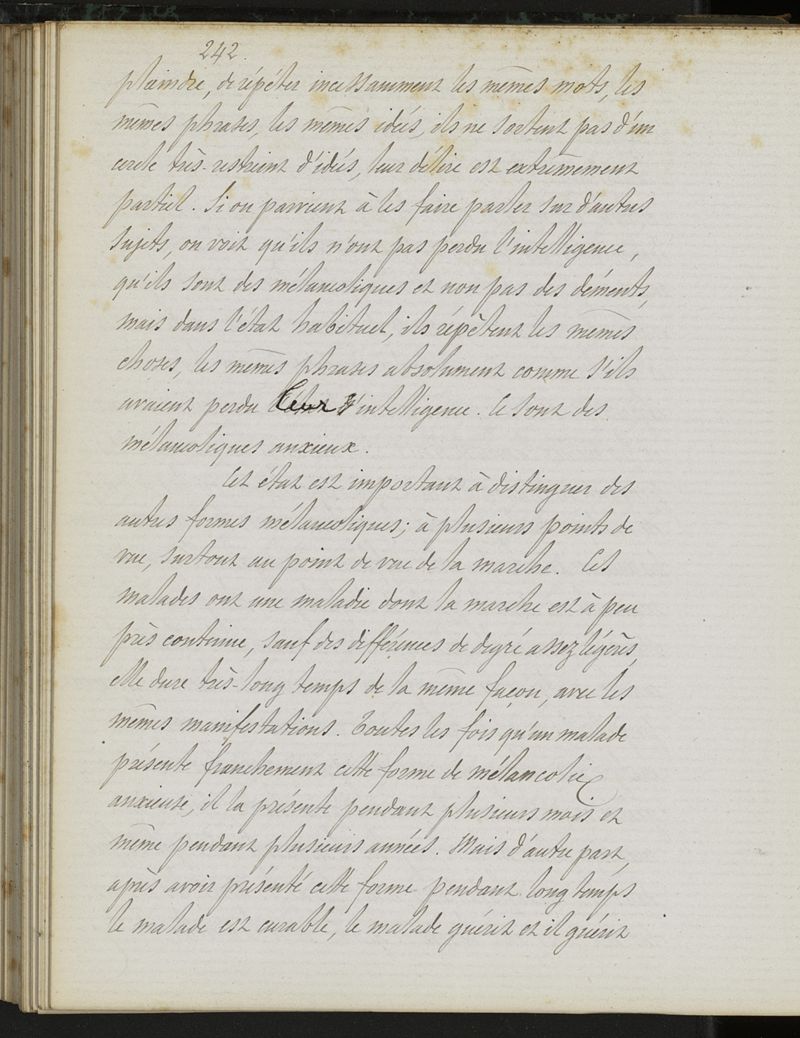 242.
plaindre, de répéter incessamment les mêmes mots, les
mêmes phrases, les mêmes idées, ils ne sortent pas d'un
cercle très-restreint d'idées, leur délire est extrêmement
partiel. Si on parvient à les faire parler sur d'autres
sujets, on voit qu'ils n'ont pas perdu l'intelligence,
qu'ils sont des mélancoliques et non pas des déments,
mais dans l'état habituel, ils répètent les mêmes
choses, les mêmes phrases absolument comme s'ils
avaient perdu leur intelligence. Ce sont des
mélancoliques anxieux.
Cet état est important à distinguer des
autres formes mélancoliques; à plusieurs points de
vue, surtout au point de vue de la marche. Ces
malades ont une maladie dont la marche est à peu
près continue, sauf des différences de degré assez légères,
elle dure très-long temps de la même façon, avec les
mêmes manifestations. Toutes les fois qu'un malade
présente franchement cette forme de mélancolie
anxieuse, il la présente pendant plusieurs mois et
même pendant plusieurs années. Mais d'autre part,
après avoir présenté cette forme pendant long temps
le malade est curable, le malade guérit et il guérit